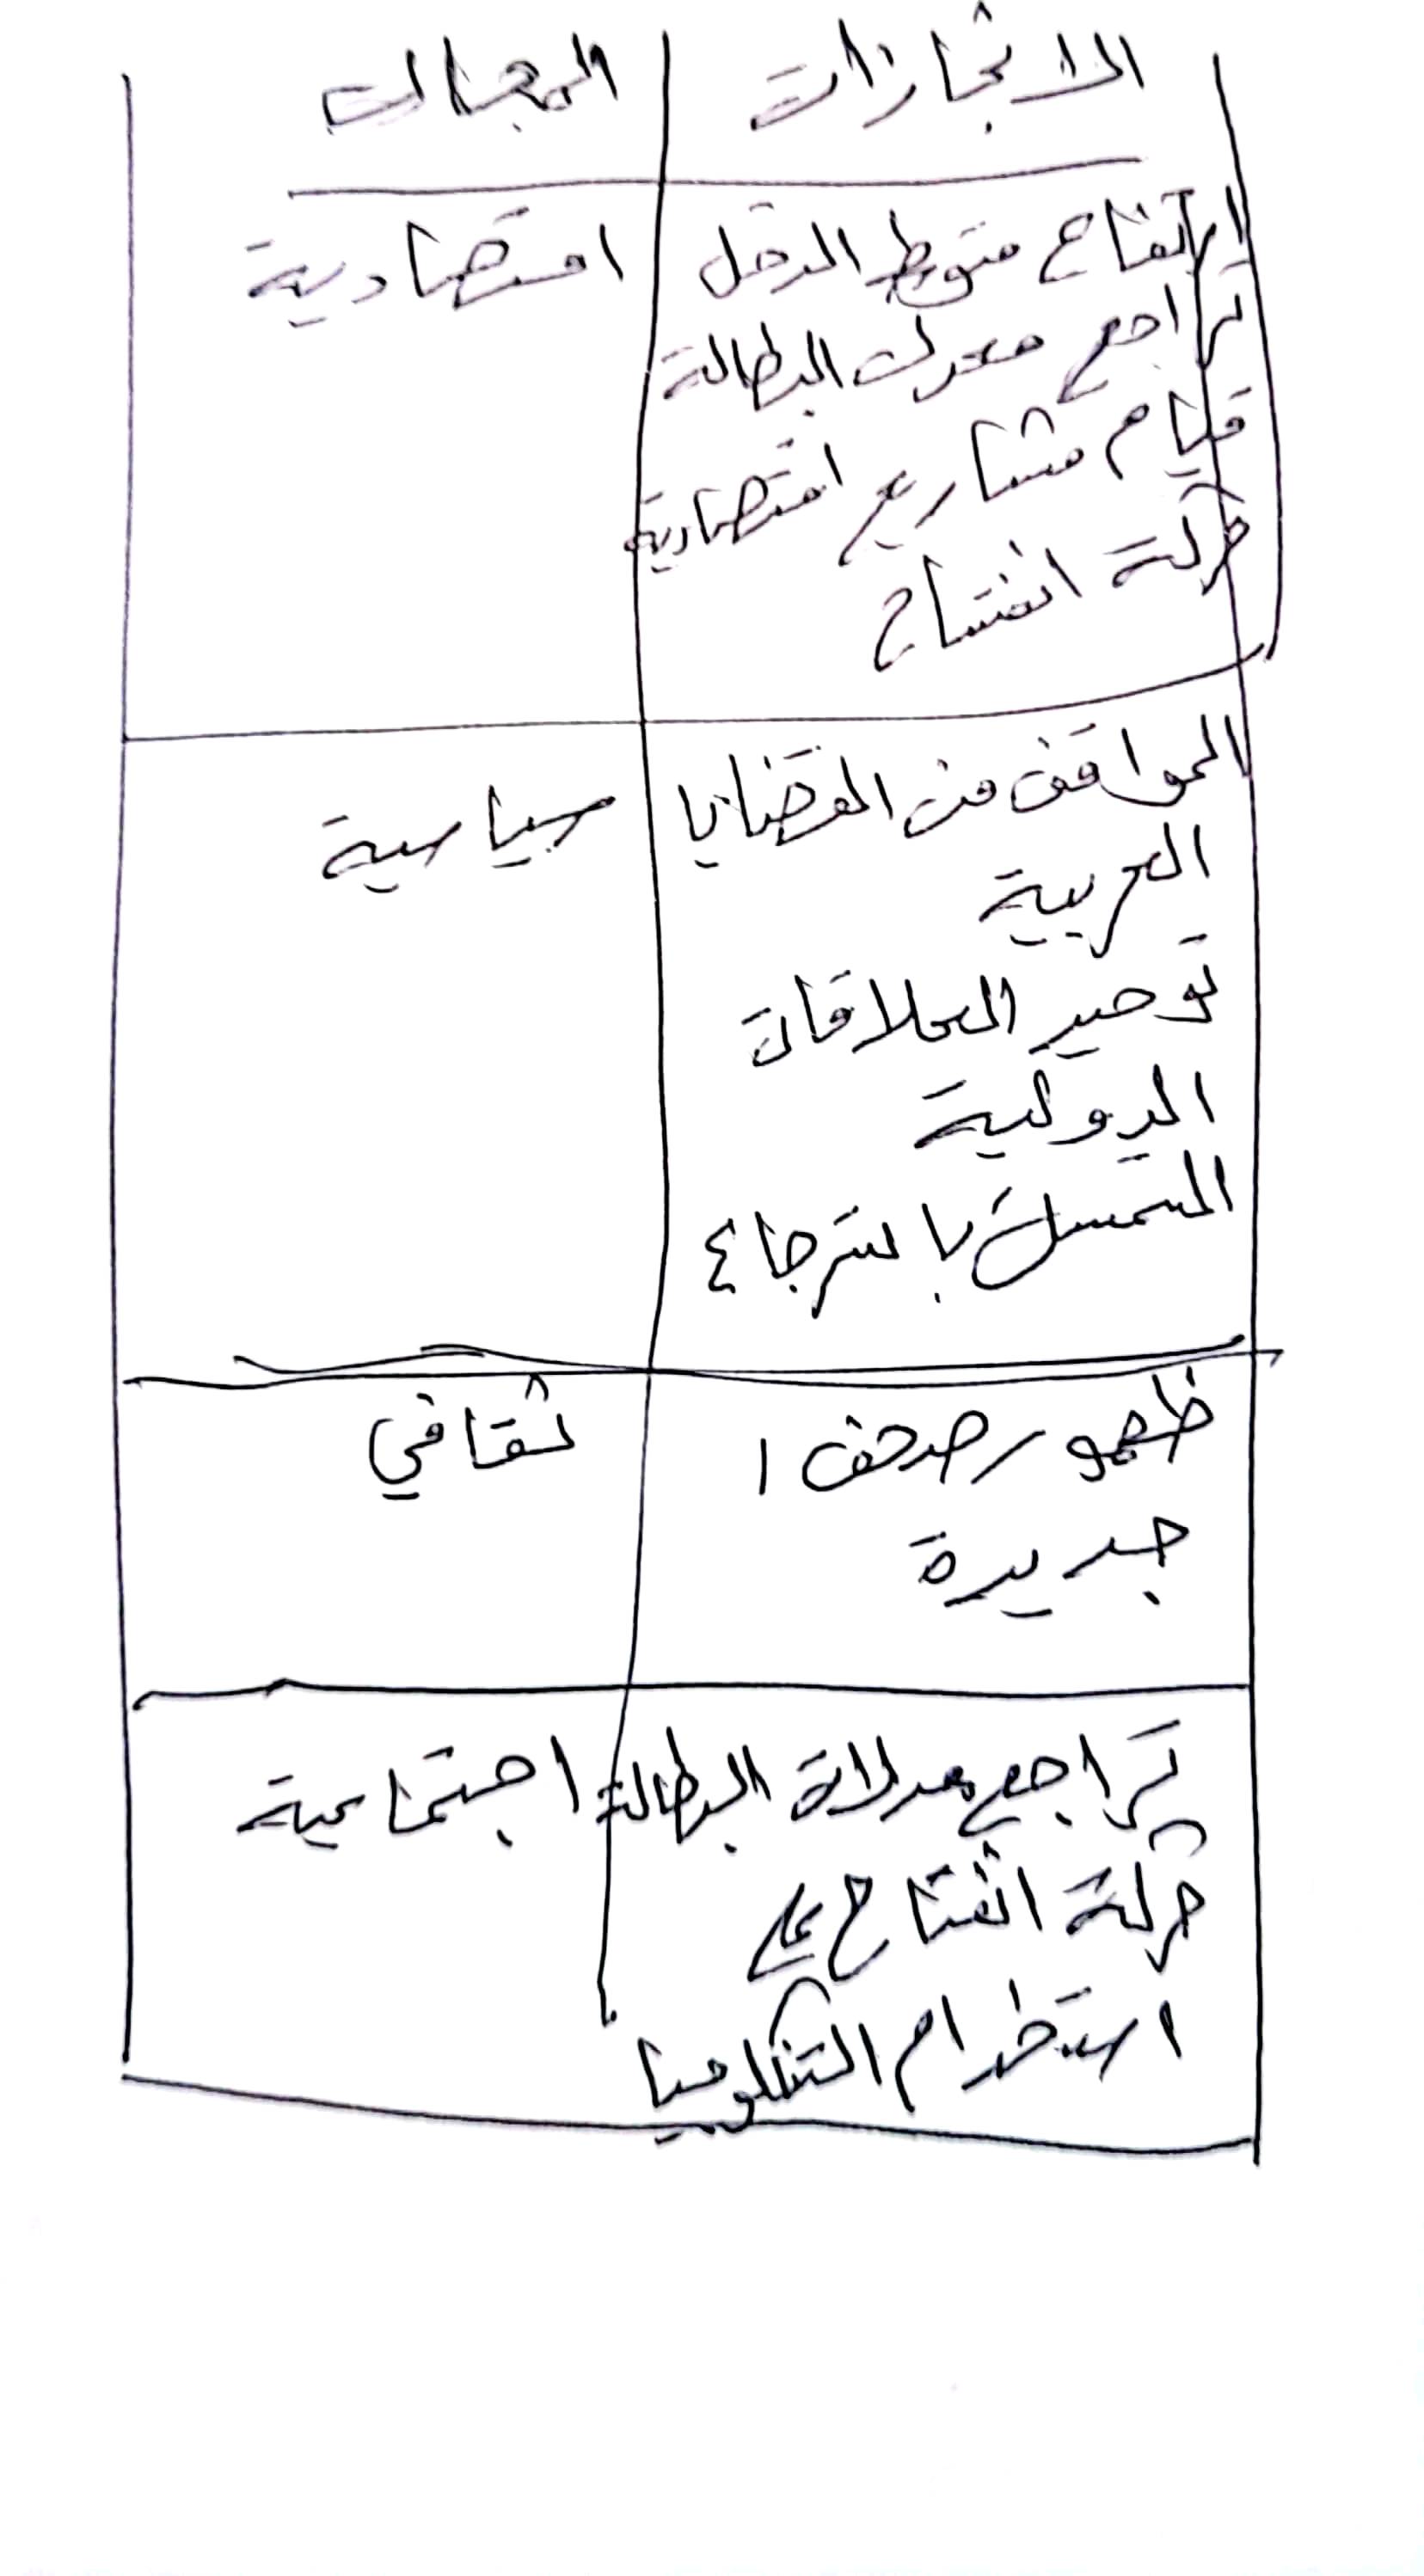 الانجازات المجالات
ارتفاع متوسط الدخل اقتصادية
تراجع معدلات البطالة
قيام مشاريع اقتصادية
حركة انفتاح
المواقف من القضايا سياسية
العربية
توحيد العلاقات
الدولية
التمسك باسترجاع
ظهور صحف ا ثقافي
جديدة
تراجع معدلاة البطالة اجتماعية
حركة انفتاح على
استخدام